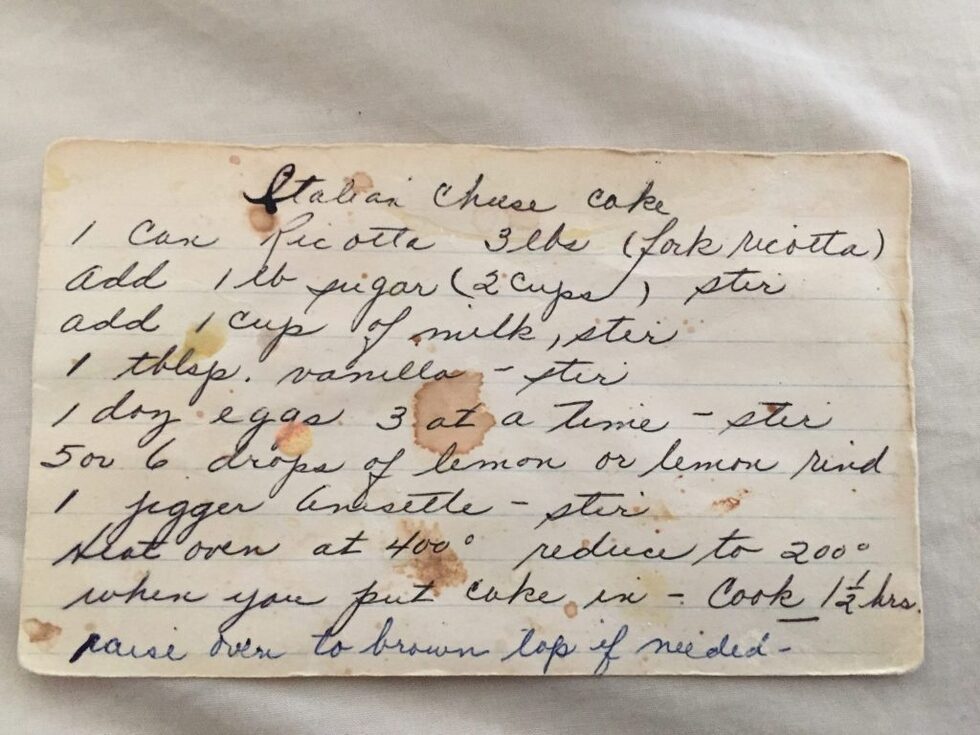 Italian Cheese cake
1 can Ricotta 3 lbs (fork ricotta)
add 1 lb sugar (2 cups) stir
add 1 cup of milk, stir
1 tblsp. vanilla - stir
1 doz eggs 3 at a time - stir
5 or 6 drops of lemon or lemon rind
1 jigger Anisette - stir
Heat oven at 400° reduce to 200°
when you put cake in - Cook 1½ hrs.
raise oven to brown top if needed -